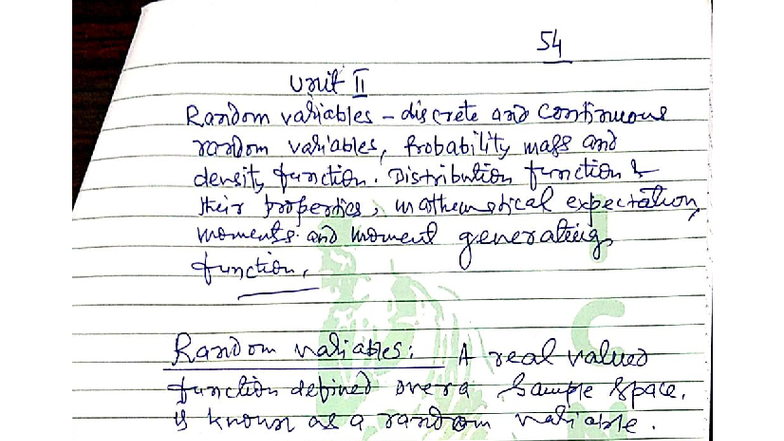 54
Unit II
Random variables – discrete and continuous
random variables, Probability mass and
density function. Distribution function &
their properties, mathematical expectation,
moments and moment generating
function.
Random variables: A real valued
function defined over a sample space,
is known as a random variable.